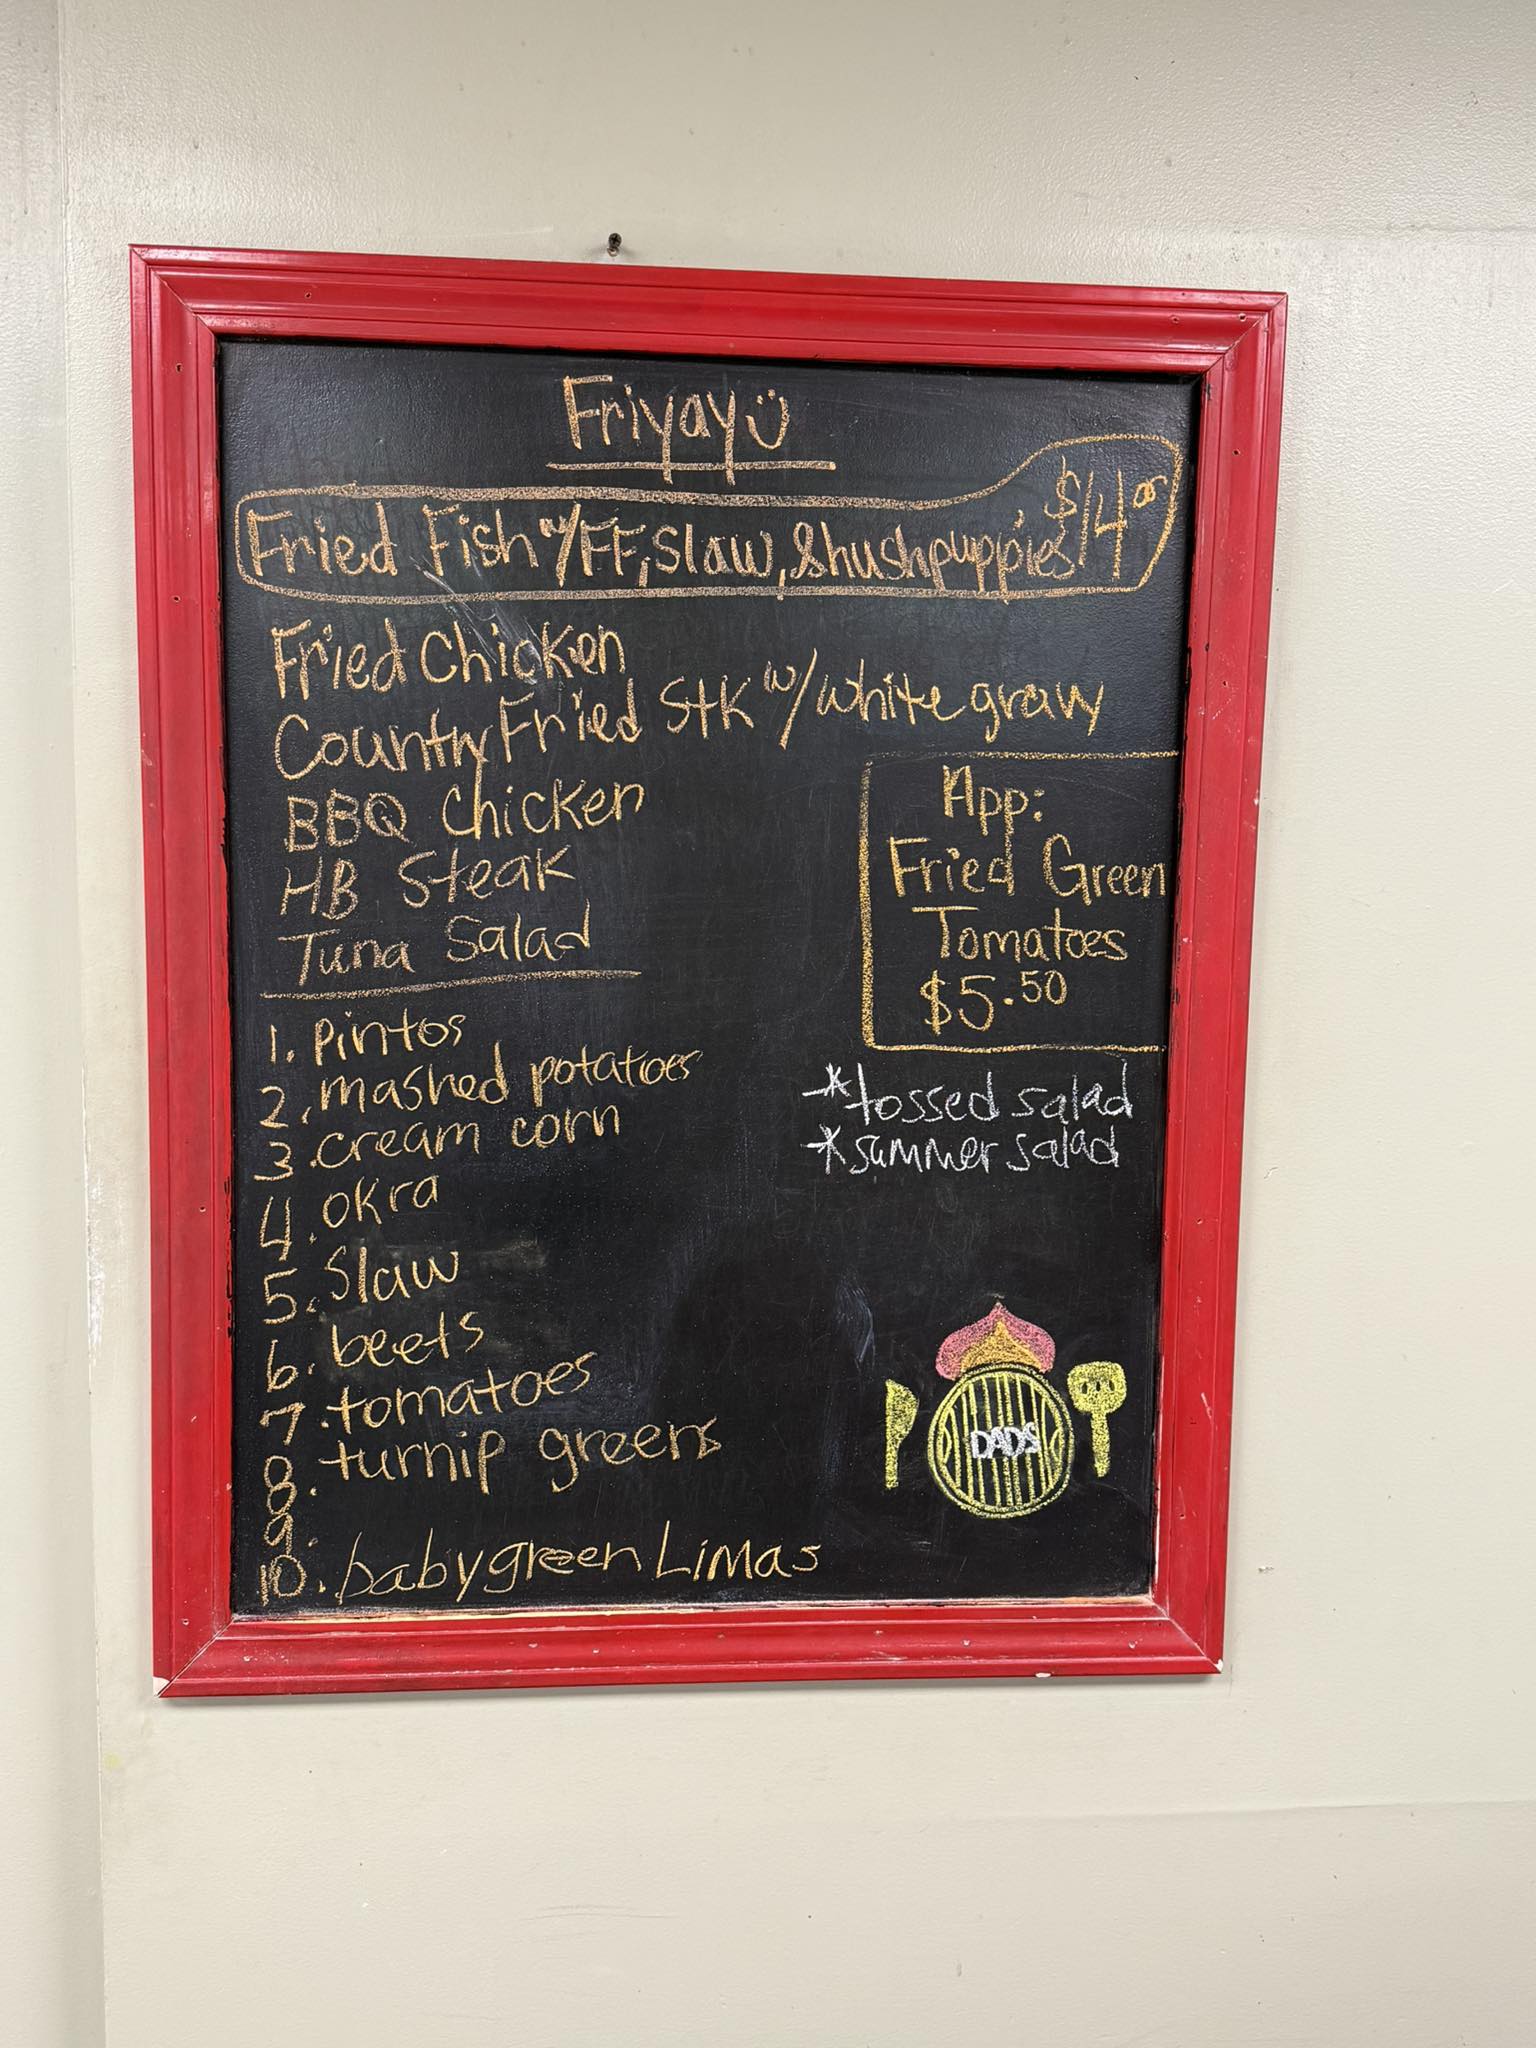 Friyay
Fried Fish w/FF, Slaw, & hushpuppies $14.00
Fried Chicken
Country Fried Stk w/ white gravy
BBQ Chicken
HB Steak
Tuna Salad
App:
Fried Green
Tomatoes
$5.50
1. pintos
2. mashed potatoes
3. cream corn
4. okra
5. slaw
6. beets
7. tomatoes
8. turnip greens
9.
10. baby green Limas
*tossed salad
*summer salad
DADS